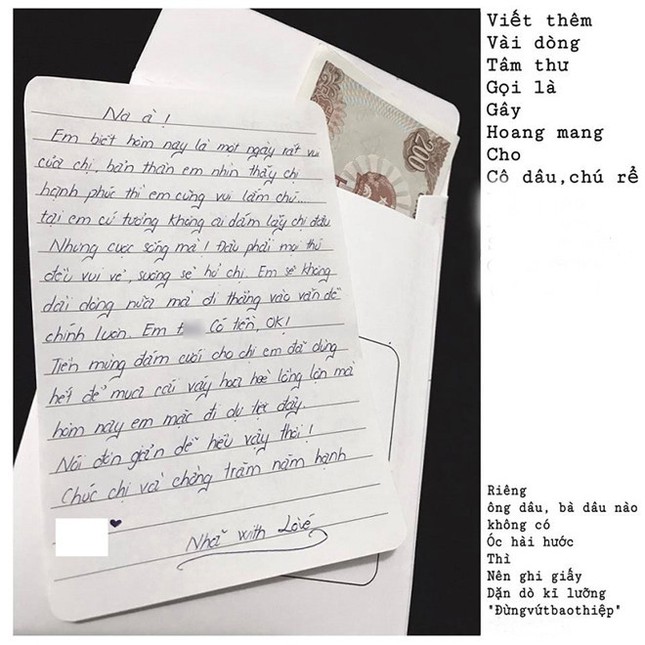 Na à!
Em biết hôm nay là một ngày rất vui
của chị, bản thân em nhìn thấy chị
hạnh phúc thì em cũng vui lắm chứ...
tại em cứ tưởng không ai dám lấy chị đâu
Nhưng cuộc sống mà! Đâu phải mọi thứ
đều vui vẻ, sướng sẽ hả chị. Em sẽ không
dài dòng nữa mà đi thẳng vào vấn đề
chính luôn. Em t có tiền, OK!
Tiền mừng đám cưới cho chị em đã dùng
hết để mua cái váy hoa hoè lồng lộn mà
hôm nay em mặc đi dự tiệc đây.
Nói đơn giản dễ hiểu vậy thôi!
Chúc chị và chồng trăm năm hạnh
Nhã with Love
200
Viết thêm
Vài dòng
Tâm thư
Gọi là
Gây
Hoang mang
Cho
Cô dâu,chú rể
Riêng
ông dâu, bà dâu nào
không có
Óc hài hước
Thì
Nên ghi giấy
Dặn dò kĩ lưỡng
"Đừngvứtbaothiệp"